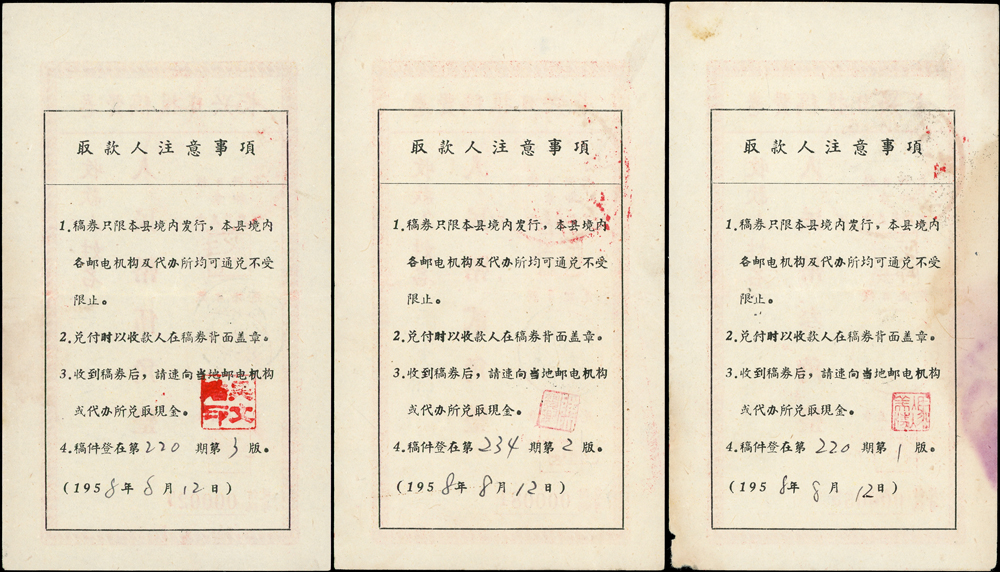 取款人注意事項
1.稿券只限本县境内发行，本县境内
各邮电机构及代办所均可通兑不受
限止。
2.兑付时以收款人在稿券背面盖章。
3.收到稿券后，請速向当地邮电机构
或代办所兑取現金。
4.稿件登在第220期第3版。
(1958年8月12日)
取款人注意事項
1.稿券只限本县境内发行，本县境内
各邮电机构及代办所均可通兑不受
限止。
2.兑付时以收款人在稿券背面盖章。
3.收到稿券后，請速向当地邮电机构
或代办所兑取現金。
4.稿件登在第234期第2版。
(1958年8月12日)
取款人注意事項
1.稿券只限本县境内发行，本县境内
各邮电机构及代办所均可通兑不受
限止。
2.兑付时以收款人在稿券背面盖章。
3.收到稿券后，請速向当地邮电机构
或代办所兑取現金。
4.稿件登在第220期第1版。
(1958年8月12日)